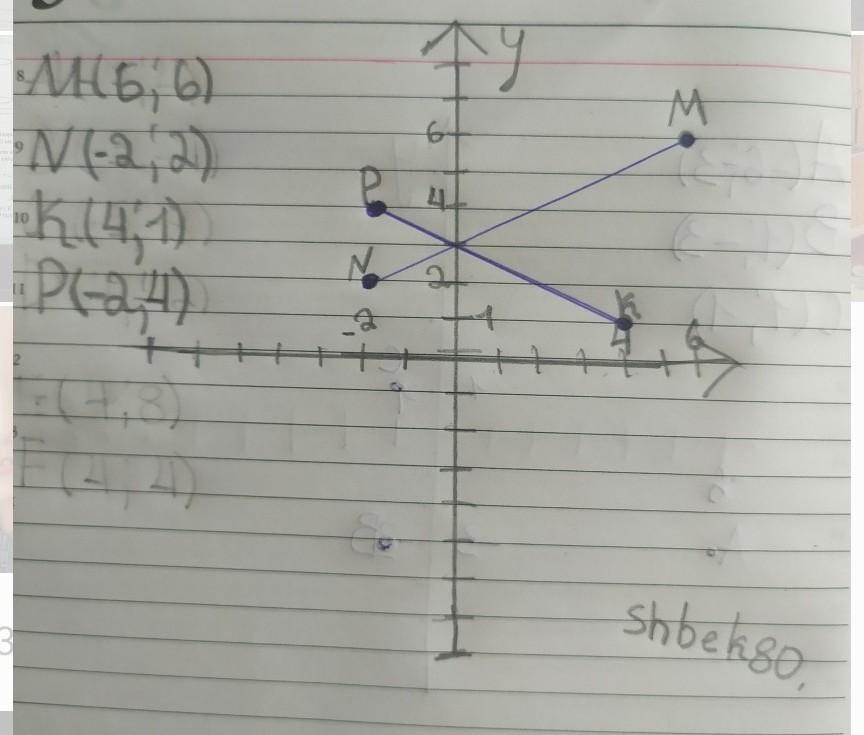 y
M(6; 6)
N(-2; 2)
K(4; 1)
P(-2; 4)
M
6
P
4
N
2
K
-2
1
4
6
E(7; 8)
F(4; 4)
shbek80.